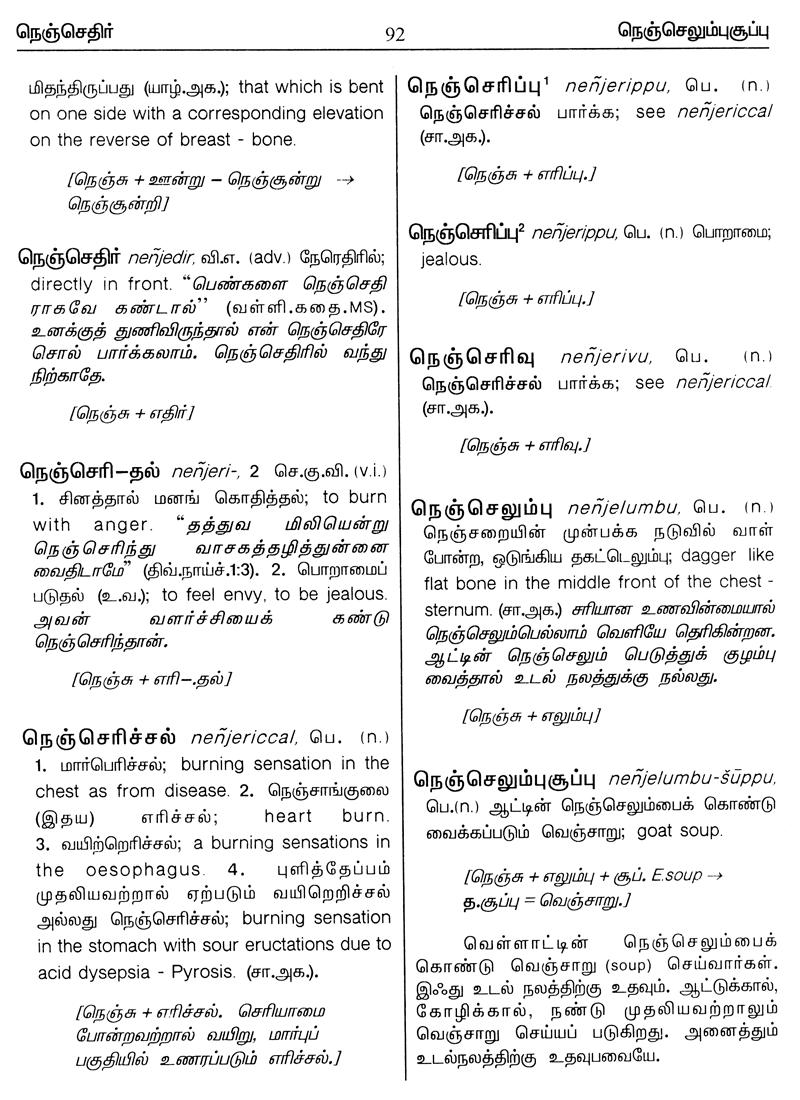 நெஞ்செதிர்
92
நெஞ்செலும்புசூப்பு
மிதந்திருப்பது (யாழ்.அக.); that which is bent
on one side with a corresponding elevation
on the reverse of breast - bone.
[நெஞ்சு + ஊன்று – நெஞ்சூன்று →
நெஞ்சூன்றி]
நெஞ்செதிர் neñjedir, வி.எ. (adv.) நேரெதிரில்;
directly in front. “பெண்களை நெஞ்செதி
ராகவே கண்டால்’’ (வள்ளி.கதை.MS).
உனக்குத் துணிவிருந்தால் என் நெஞ்செதிரே
சொல் பார்க்கலாம். நெஞ்செதிரில் வந்து
நிற்காதே.
[நெஞ்சு + எதிர்]
நெஞ்செரி–தல் neñjeri-, 2 செ.கு.வி. (v.i.)
1. சினத்தால் மனங் கொதித்தல்; to burn
with anger. “தத்துவ மிலியென்று
நெஞ்செரிந்து வாசகத்தழித்துன்னை
வைதிடாமே” (திவ்.நாய்ச்.1:3). 2. பொறாமைப்
படுதல் (உ.வ.); to feel envy, to be jealous.
அவன் வளர்ச்சியைக் கண்டு
நெஞ்செரிந்தான்.
[நெஞ்சு + எரி–.தல்]
நெஞ்செரிச்சல் neñjericcal, பெ. (n.)
1. மார்பெரிச்சல்; burning sensation in the
chest as from disease. 2. நெஞ்சாங்குலை
(இதய) எரிச்சல்; heart burn.
3. வயிற்றெரிச்சல்; a burning sensations in
the oesophagus. 4. புளித்தேப்பம்
முதலியவற்றால் ஏற்படும் வயிறெறிச்சல்
அல்லது நெஞ்செரிச்சல்; burning sensation
in the stomach with sour eructations due to
acid dysepsia - Pyrosis. (சா.அக.).
[நெஞ்சு + எரிச்சல். செரியாமை
போன்றவற்றால் வயிறு, மார்புப்
பகுதியில் உணரப்படும் எரிச்சல்.]
நெஞ்செரிப்பு¹ neñjerippu, பெ. (n.)
நெஞ்செரிச்சல் பார்க்க; see neñjericcal
(சா.அக.).
[நெஞ்சு + எரிப்பு.]
நெஞ்செரிப்பு² neñjerippu, பெ. (n.) பொறாமை;
jealous.
[நெஞ்சு + எரிப்பு.]
நெஞ்செரிவு neñjerivu, பெ. (n.)
நெஞ்செரிச்சல் பார்க்க; see neñjericcal.
(சா.அக.).
[நெஞ்சு + எரிவு.]
நெஞ்செலும்பு neñjelumbu, பெ. (n.)
நெஞ்சறையின் முன்பக்க நடுவில் வாள்
போன்ற, ஒடுங்கிய தகட்டெலும்பு; dagger like
flat bone in the middle front of the chest -
sternum. (சா.அக.) சரியான உணவின்மையால்
நெஞ்செலும்பெல்லாம் வெளியே தெரிகின்றன.
ஆட்டின் நெஞ்செலும் பெடுத்துக் குழம்பு
வைத்தால் உடல் நலத்துக்கு நல்லது.
[நெஞ்சு + எலும்பு]
நெஞ்செலும்புசூப்பு neñjelumbu-šūppu,
பெ.(n.) ஆட்டின் நெஞ்செலும்பைக் கொண்டு
வைக்கப்படும் வெஞ்சாறு; goat soup.
[நெஞ்சு + எலும்பு + சூப். E.soup →
த.சூப்பு = வெஞ்சாறு.]
வெள்ளாட்டின் நெஞ்செலும்பைக்
கொண்டு வெஞ்சாறு (soup) செய்வார்கள்.
இஃது உடல் நலத்திற்கு உதவும். ஆட்டுக்கால்,
கோழிக்கால், நண்டு முதலியவற்றாலும்
வெஞ்சாறு செய்யப் படுகிறது. அனைத்தும்
உடல்நலத்திற்கு உதவுபவையே.